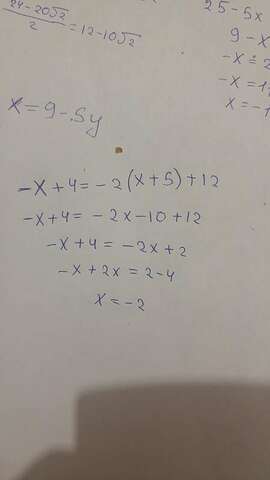 24-20√2
2
=12-10√2
25-5x
9-x
-x=
-x=
x=-
x=9-5y
-x+4=-2(x+5)+12
-x+4=-2x-10+12
-x+4=-2x+2
-x+2x=2-4
x=-2